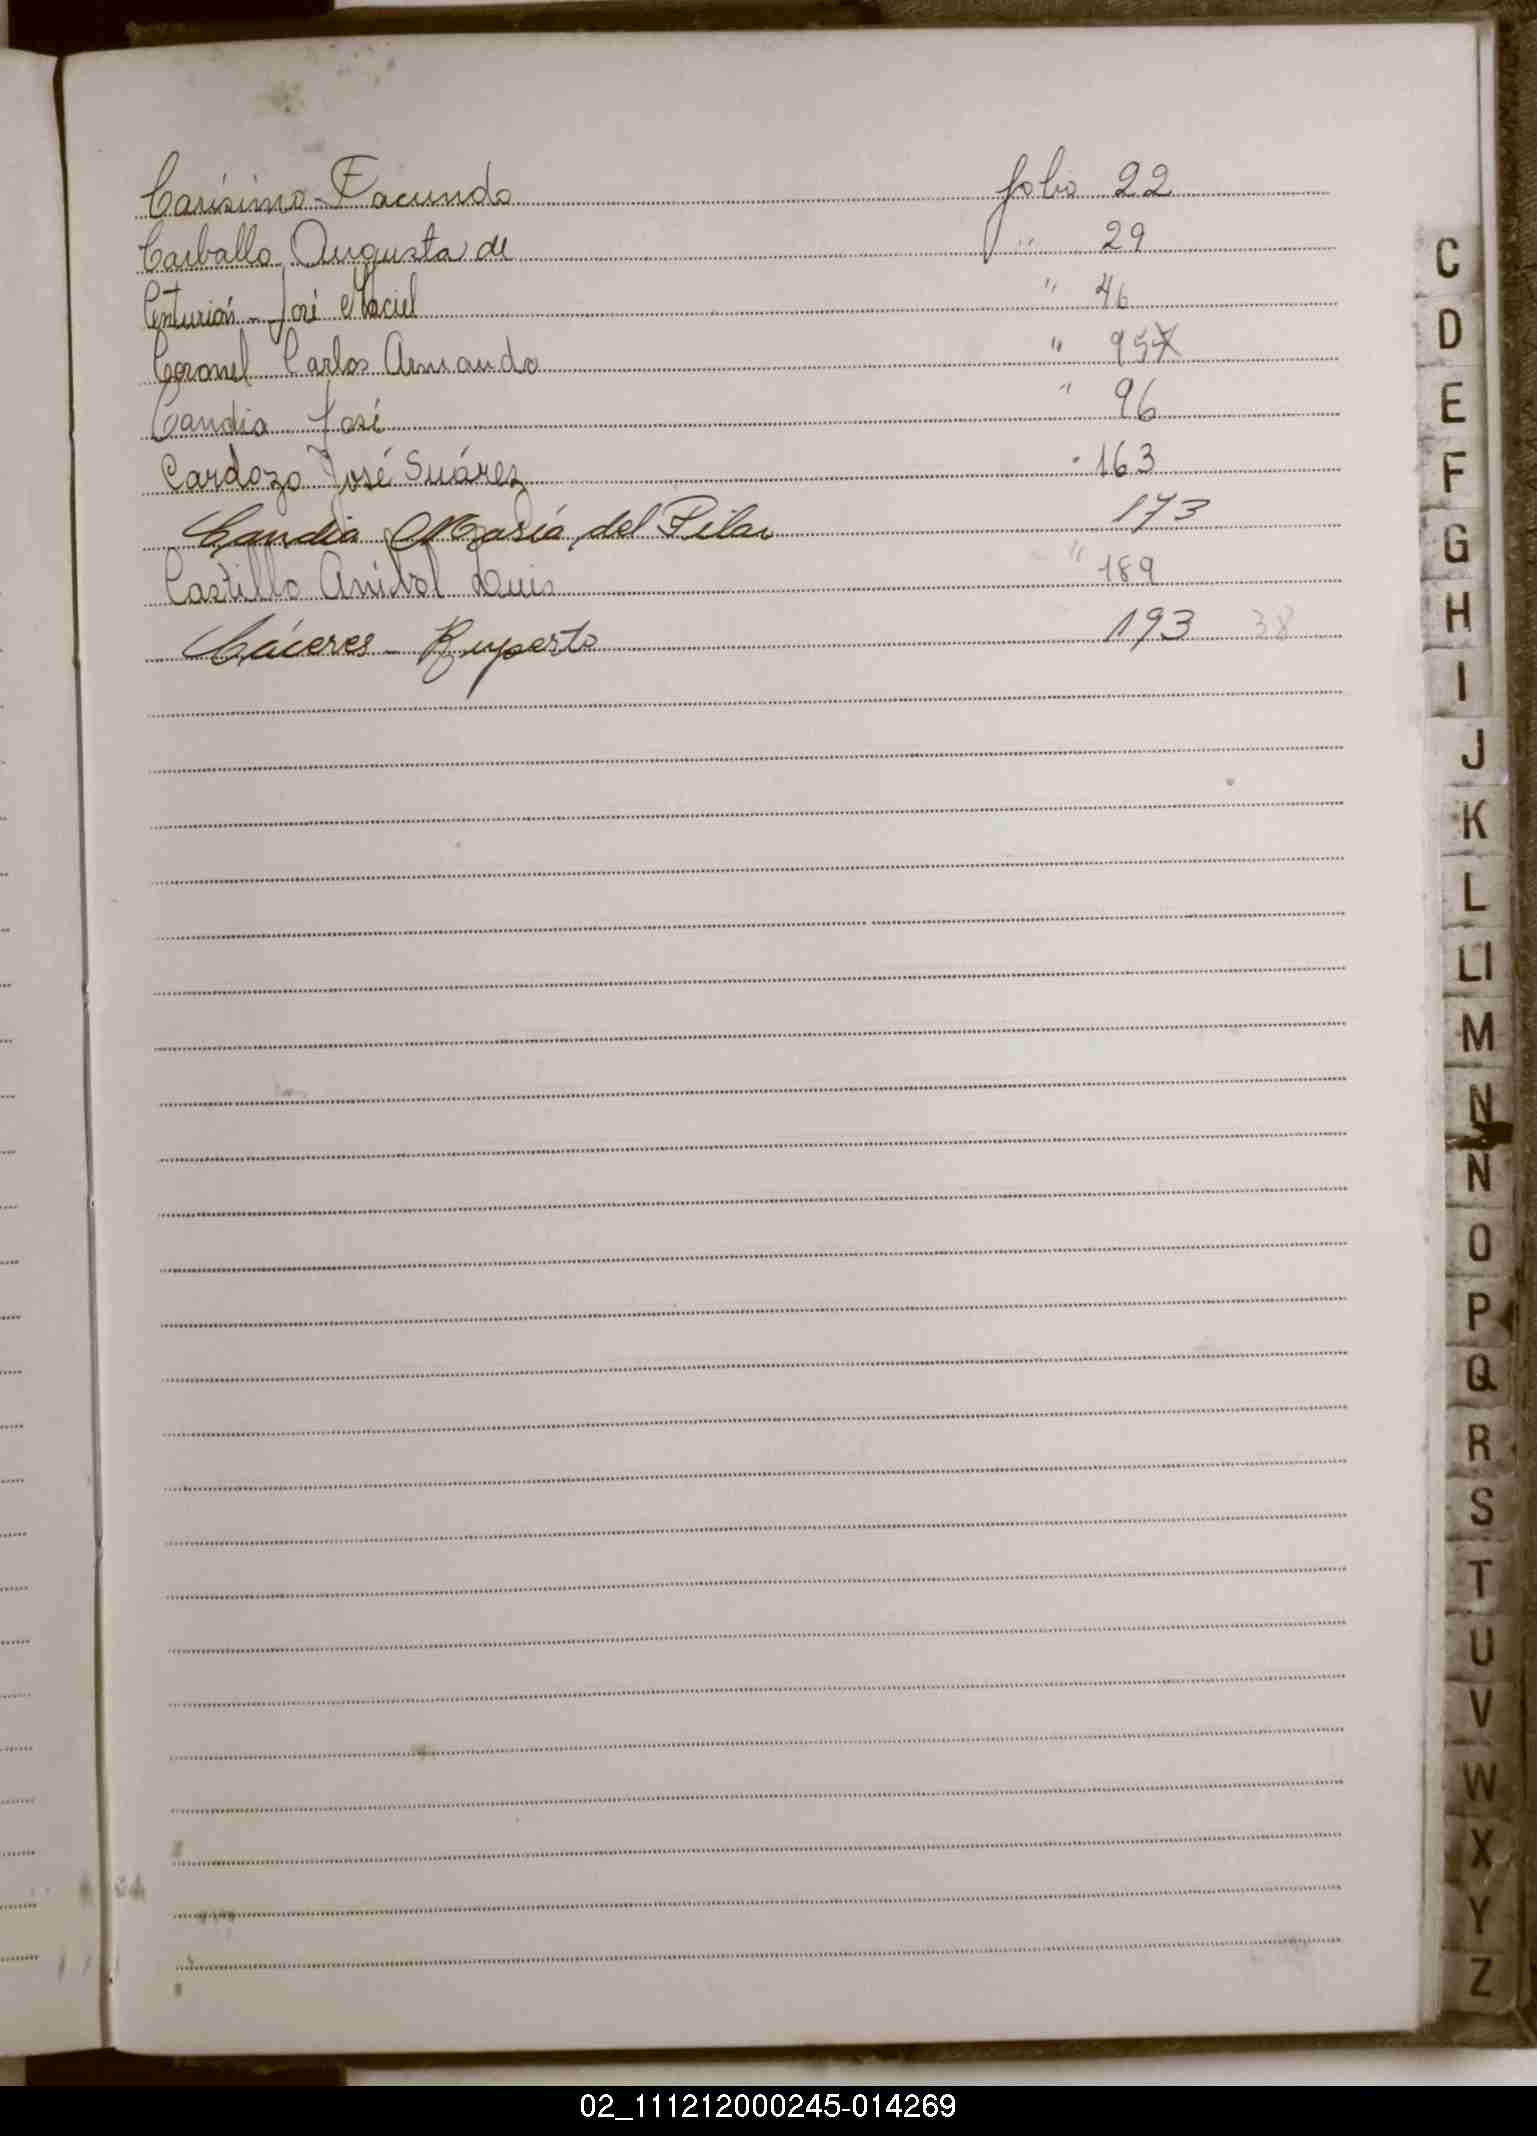 Carísimo - Facundo folio 22
Carballo Augusta de " 29
Centurión - José Maciel " 46
Coronel Carlos Armando " 95
Candia José " 96
Cardozo José Suárez " 163
Candia María del Pilar 173
Castillo Aníbal Luis " 189
Cáceres - Ruperto 193 38
C
D
E
F
G
H
I
J
K
L
Ll
M
N
Ñ
O
P
Q
R
S
T
U
V
W
X
Y
Z
02_111212000245-014269